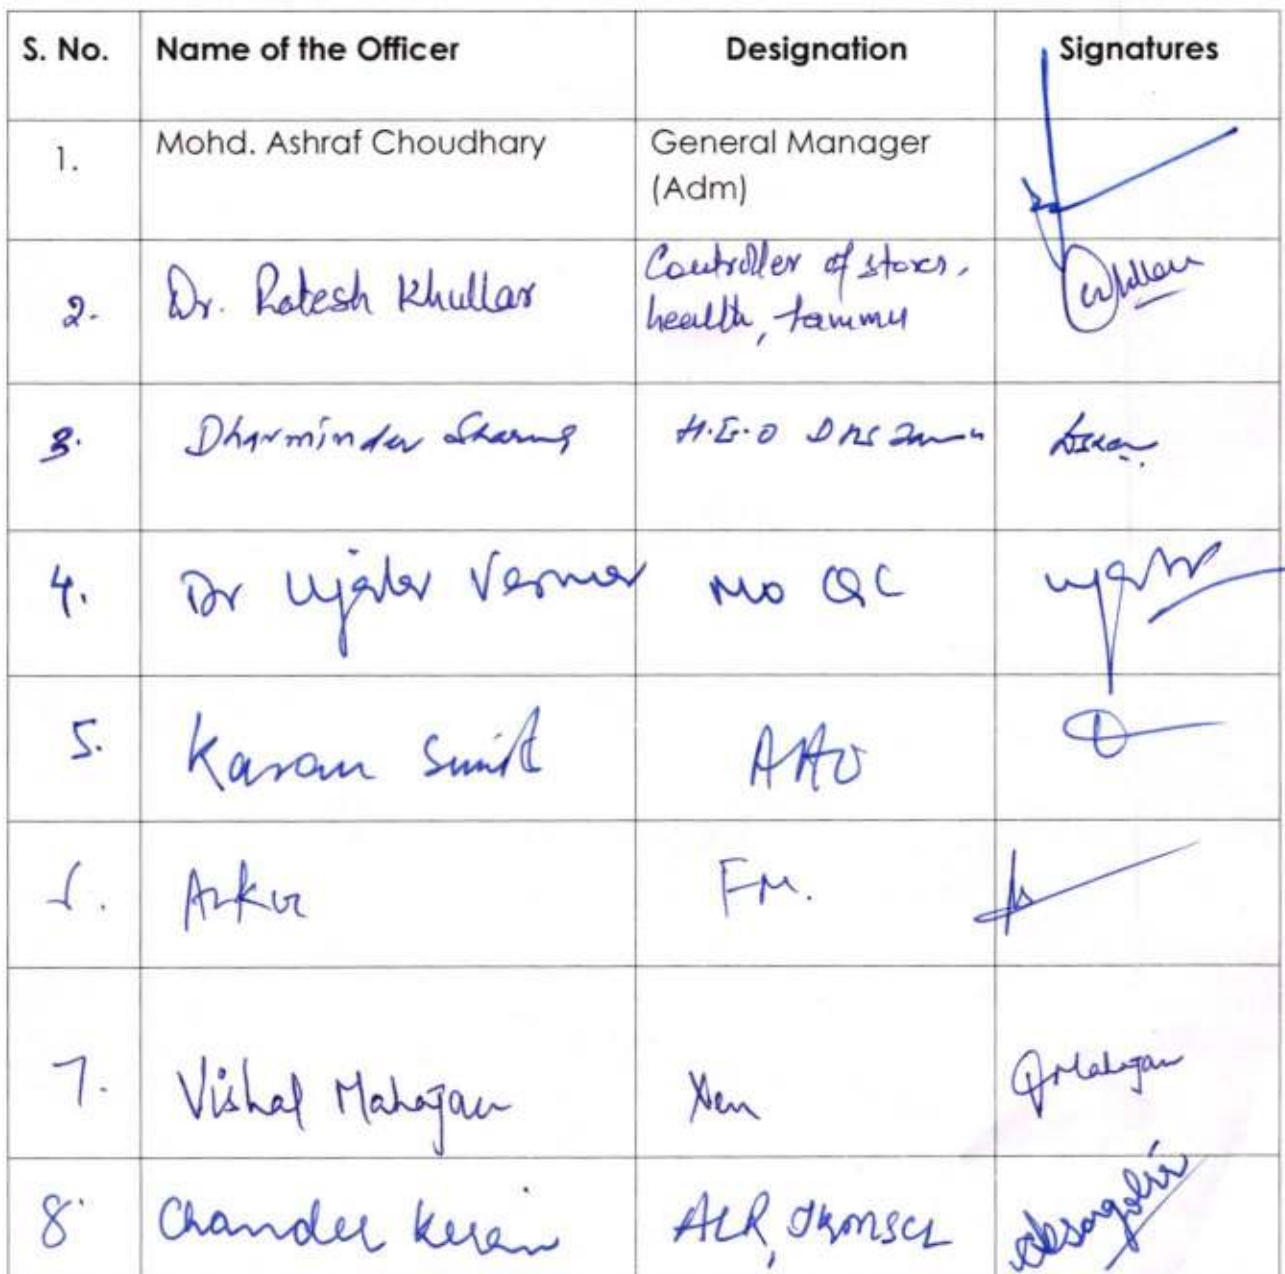 S. No. Name of the Officer Designation Signatures
1. Mohd. Ashraf Choudhary General Manager
(Adm)
2. Dr. Ratesh Khullar Controller of stores,
health, Jammu
3. Dharminder Sharma H.E.O DHS
4. Dr Ujala Verma MO QC
5. Karan AAO
Ankur FM.
7. Vishal Mahajan Xen Mahajan
8 Chander ALR, JKMSCL